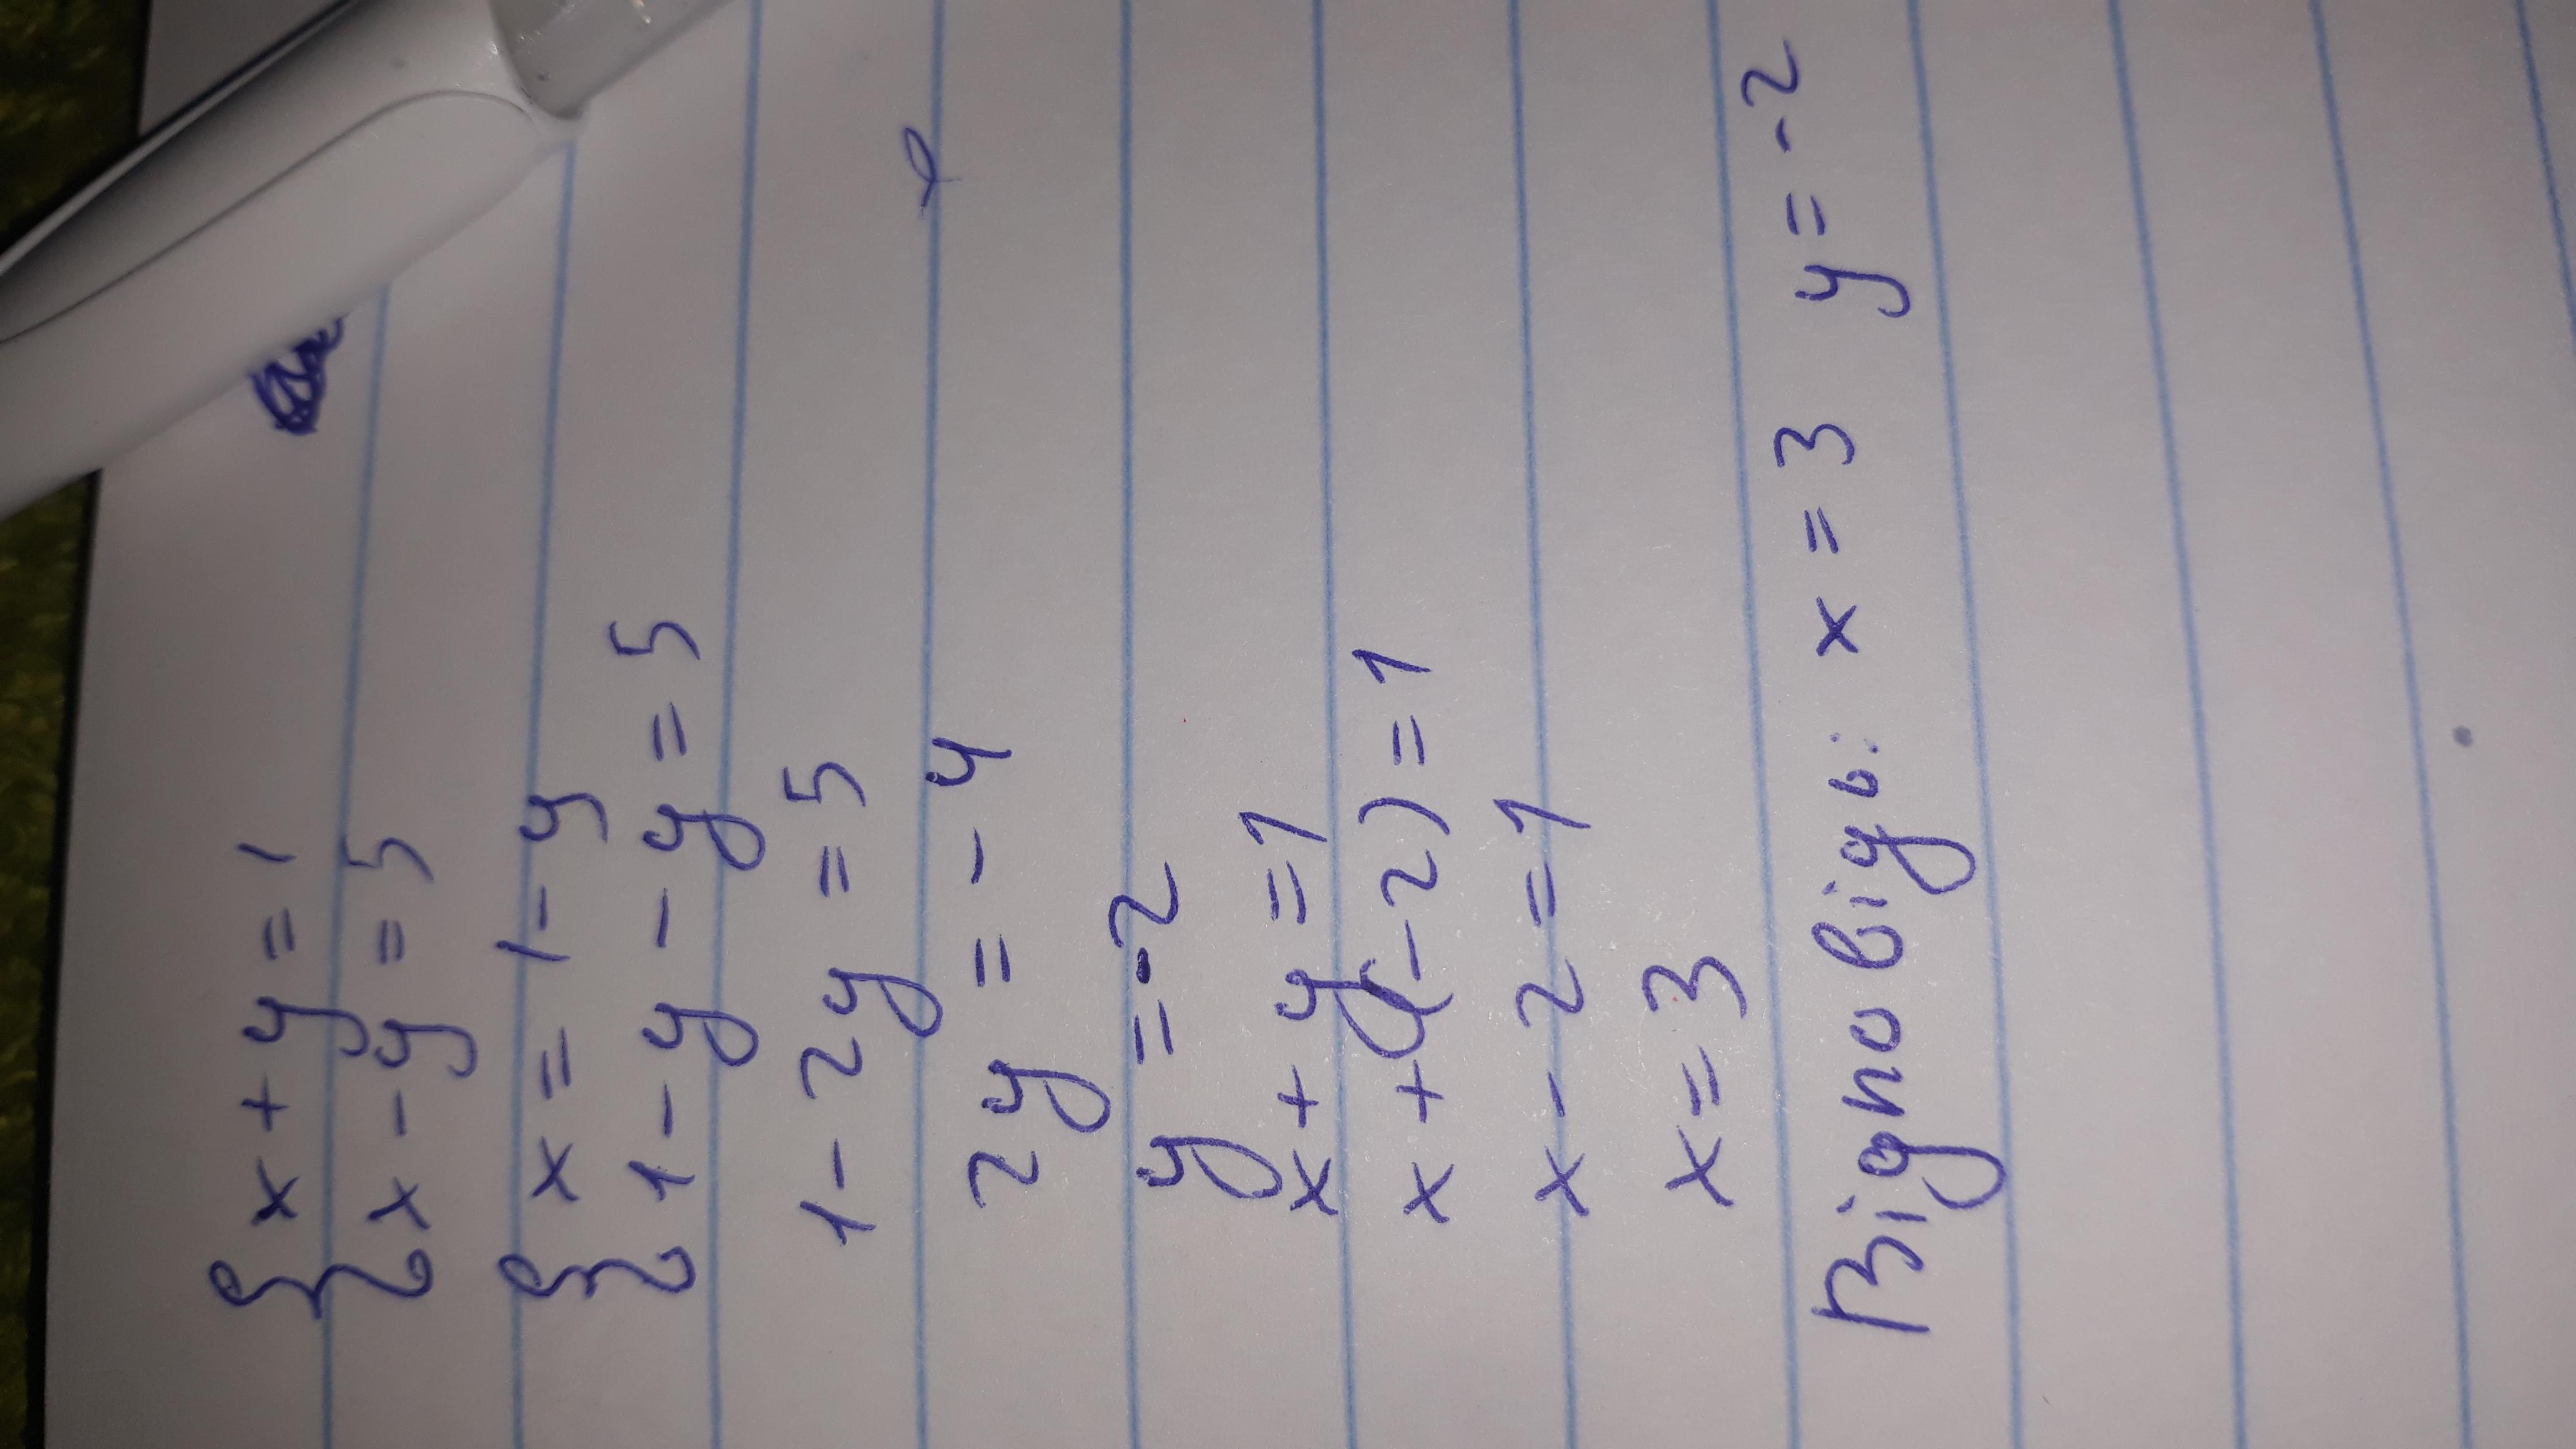 { x + y = 1
{ x - y = 5
{ x = 1 - y
{ 1 - y - y = 5
1 - 2y = 5
2y = - 4
y = -2
x + y = 1
x + (-2) = 1
x - 2 = 1
x = 3
Відповідь: x = 3 y = -2